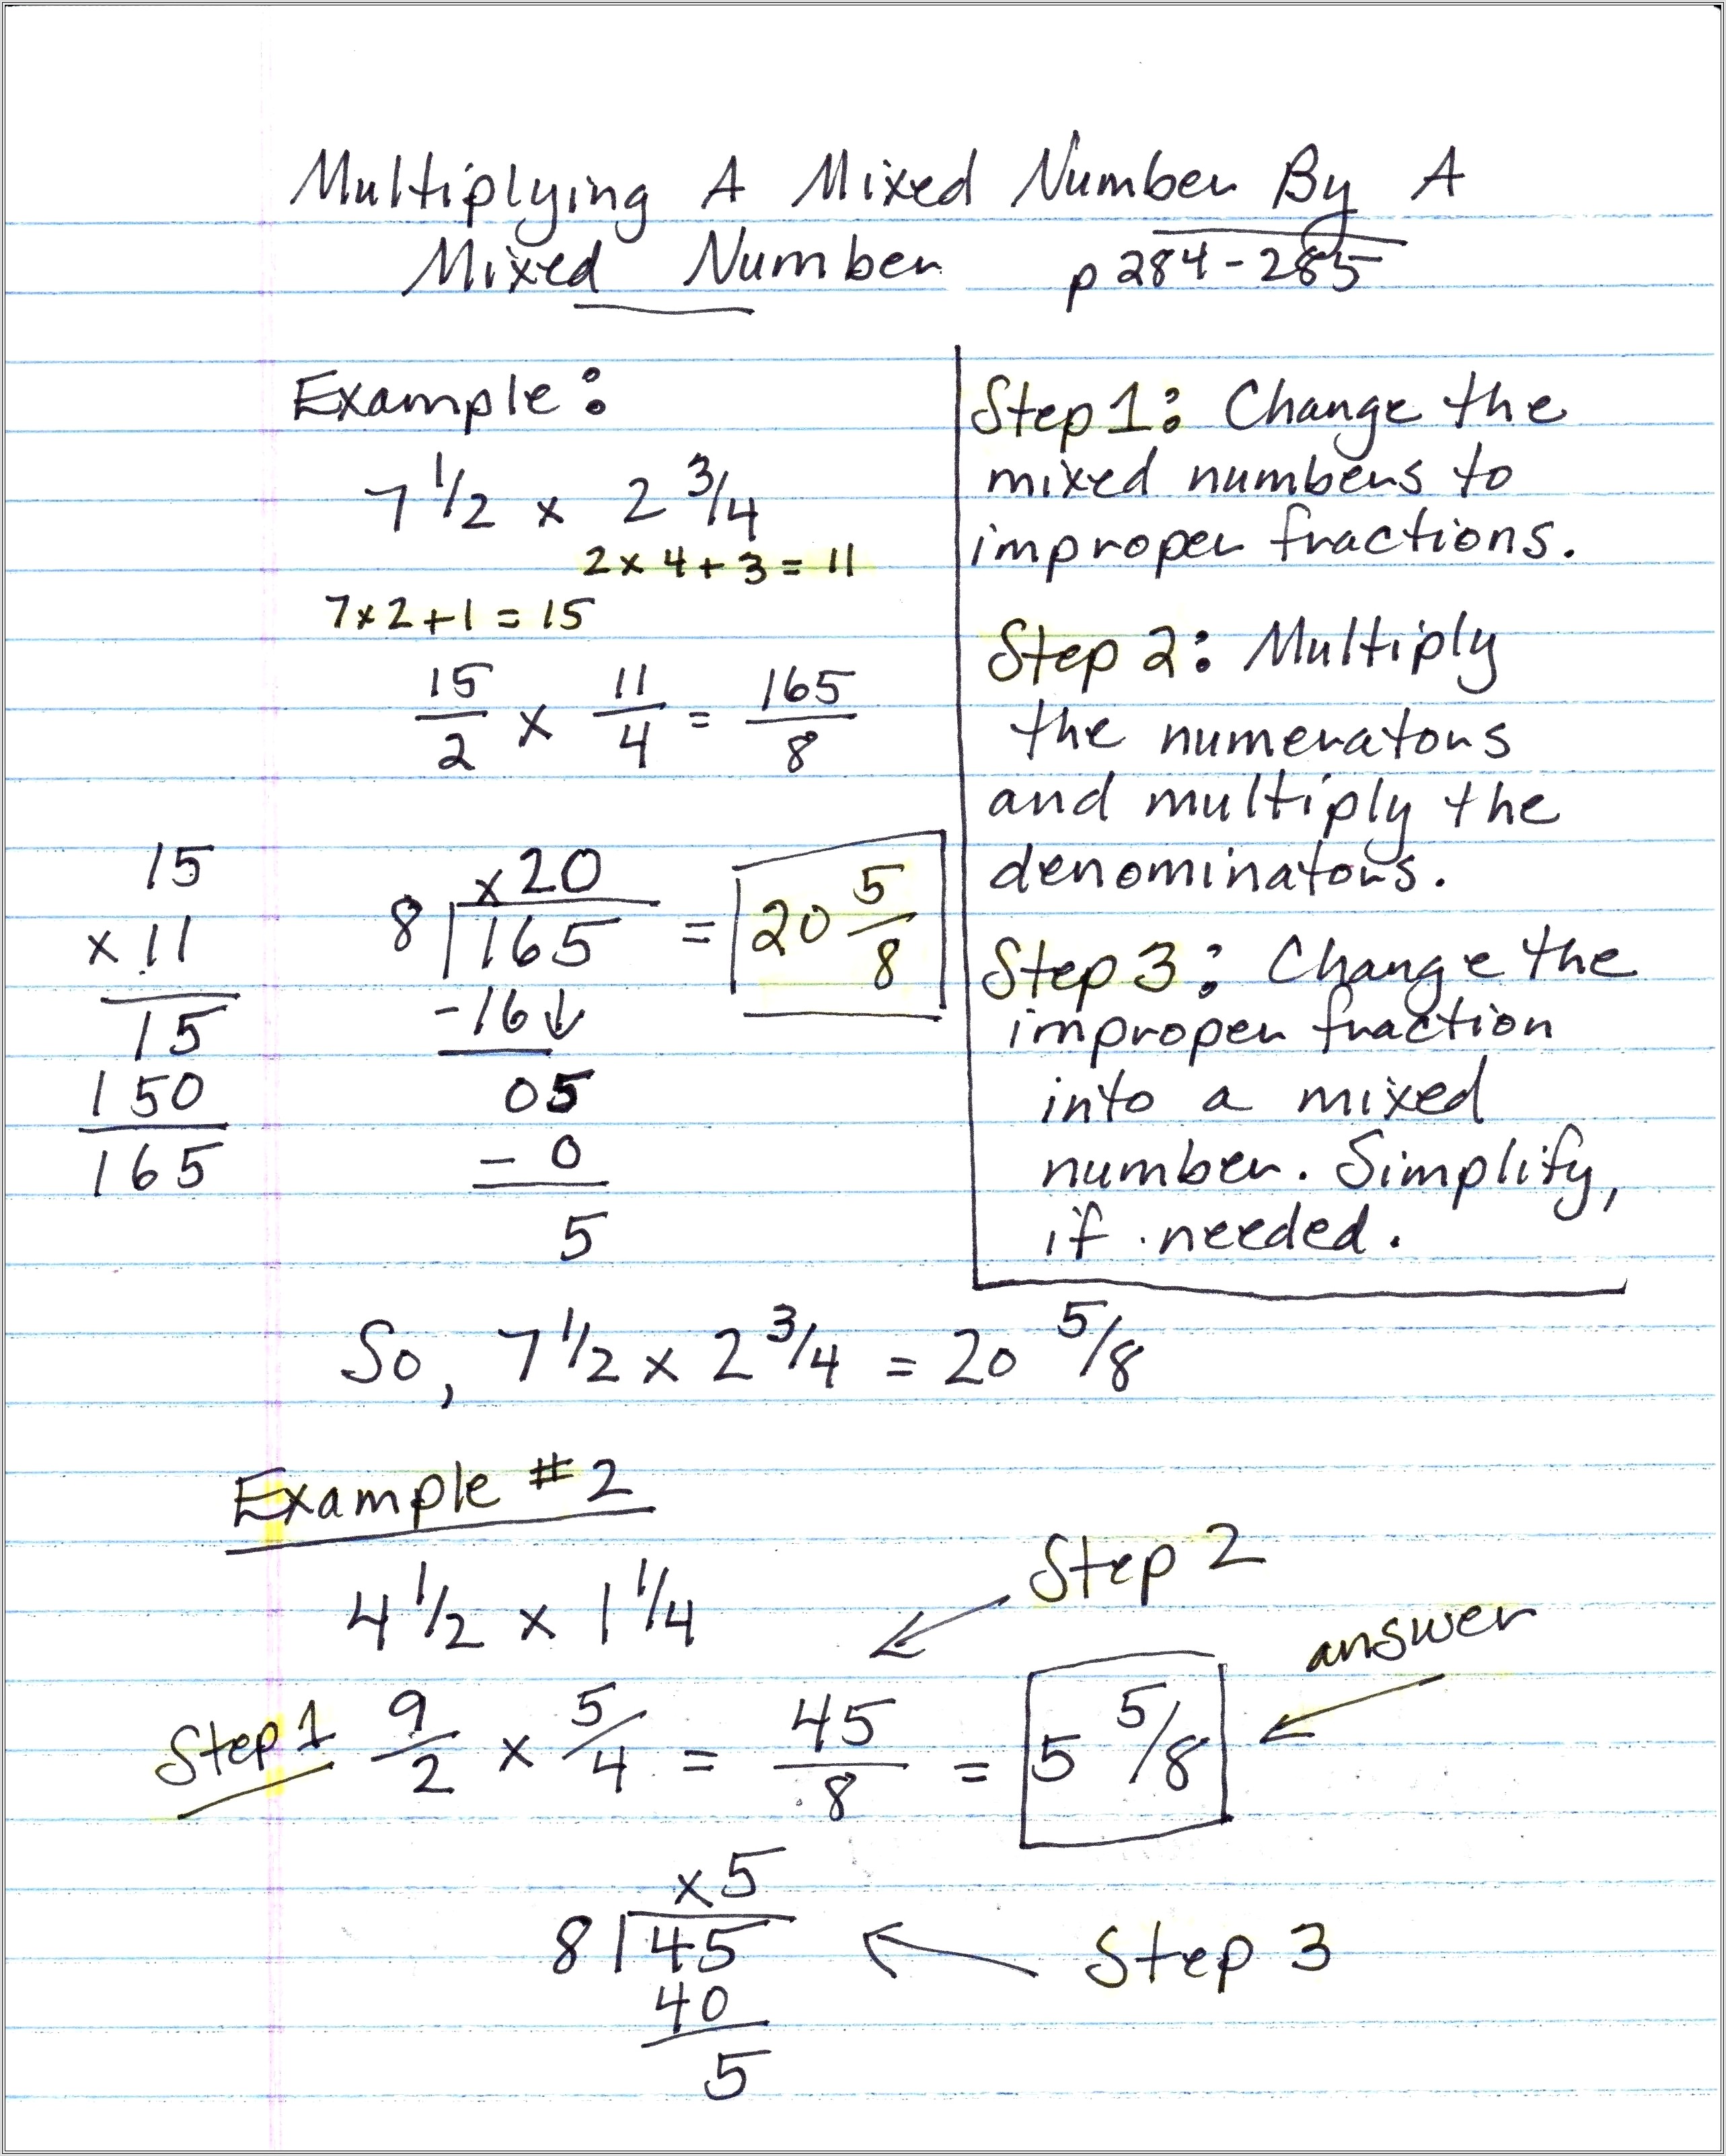 Multiplying A Mixed Number By A
Mixed Number p 284-285
Example:
7 1/2 x 2 3/4
2 x 4 + 3 = 11
7 x 2 + 1 = 15
15/2 x 11/4 = 165/8
15
x 11
15
150
165
x20
8 165 = 20 5/8
-16↓
05
- 0
5
Step 1: Change the
mixed numbers to
improper fractions.
Step 2: Multiply
the numerators
and multiply the
denominators.
Step 3: Change the
improper fraction
into a mixed
number. Simplify,
if needed.
So, 7 1/2 x 2 3/4 = 20 5/8
Example #2
4 1/2 x 1 1/4
Step 2
answer
Step 1 9/2 x 5/4 = 45/8 = 5 5/8
x5
8 45
40
5
Step 3